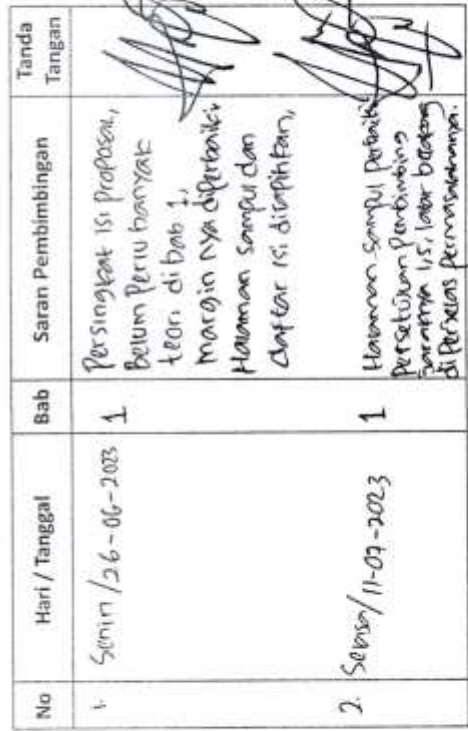 No
Hari / Tanggal
Bab
Saran Pembimbingan
Tanda
Tangan
1.
Senin / 26-06-2023
1
Persingkat isi proposal,
Belum Perlu banyak
teori di bab 1,
margin nya diperbaiki
Halaman sampul dan
daftar isi dirapihkan,
2.
Selasa / 11-07-2023
1
Halaman sampul perbaiki
Persetujuan Pembimbing
Jaraknya 1,5, latar belakang
diperjelas permasalahannya.